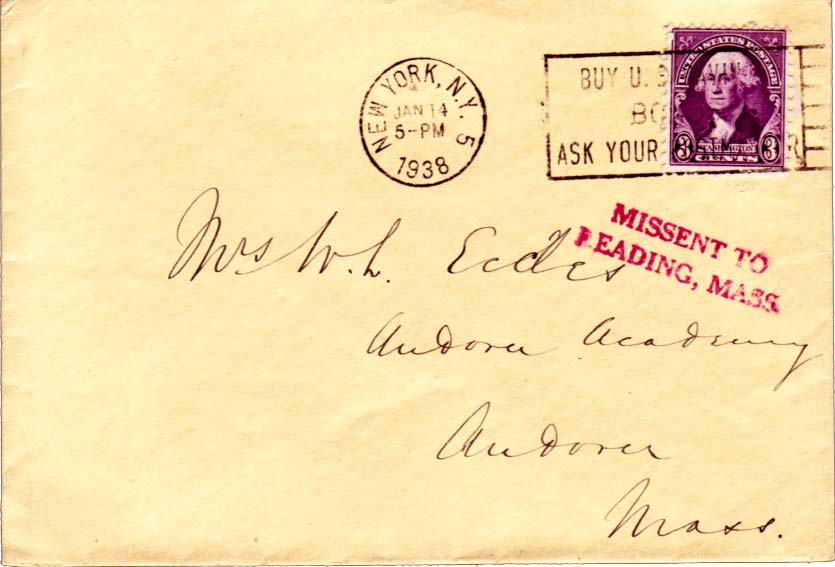 NEW YORK, N.Y. 5
JAN 14
5-PM
1938
BUY U. S
BO
ASK YOUR
UNITED STATES POSTAGE
3 WASHINGTON 3
CENTS
MISSENT TO
READING, MASS.
Mrs W. L. Eccles
Andover Academy
Andover
Mass.